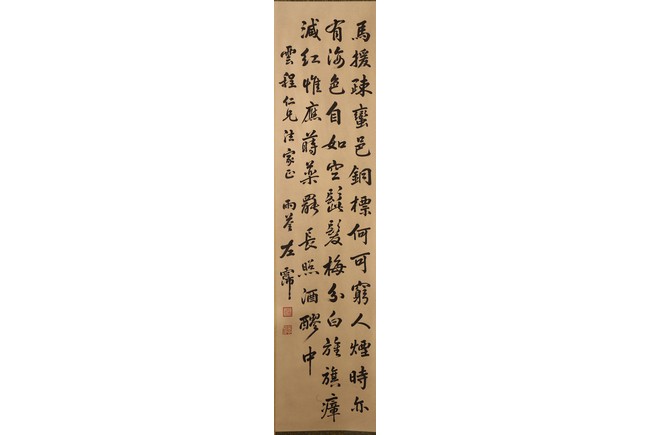 馬援疎蠻邑銅標何可窮人煙時亦
有海色自如空髭髮梅分白旌旗瘴
減紅惟應蒔藥罷長照酒醪中
雲程仁兄法家正 雨荃左霈